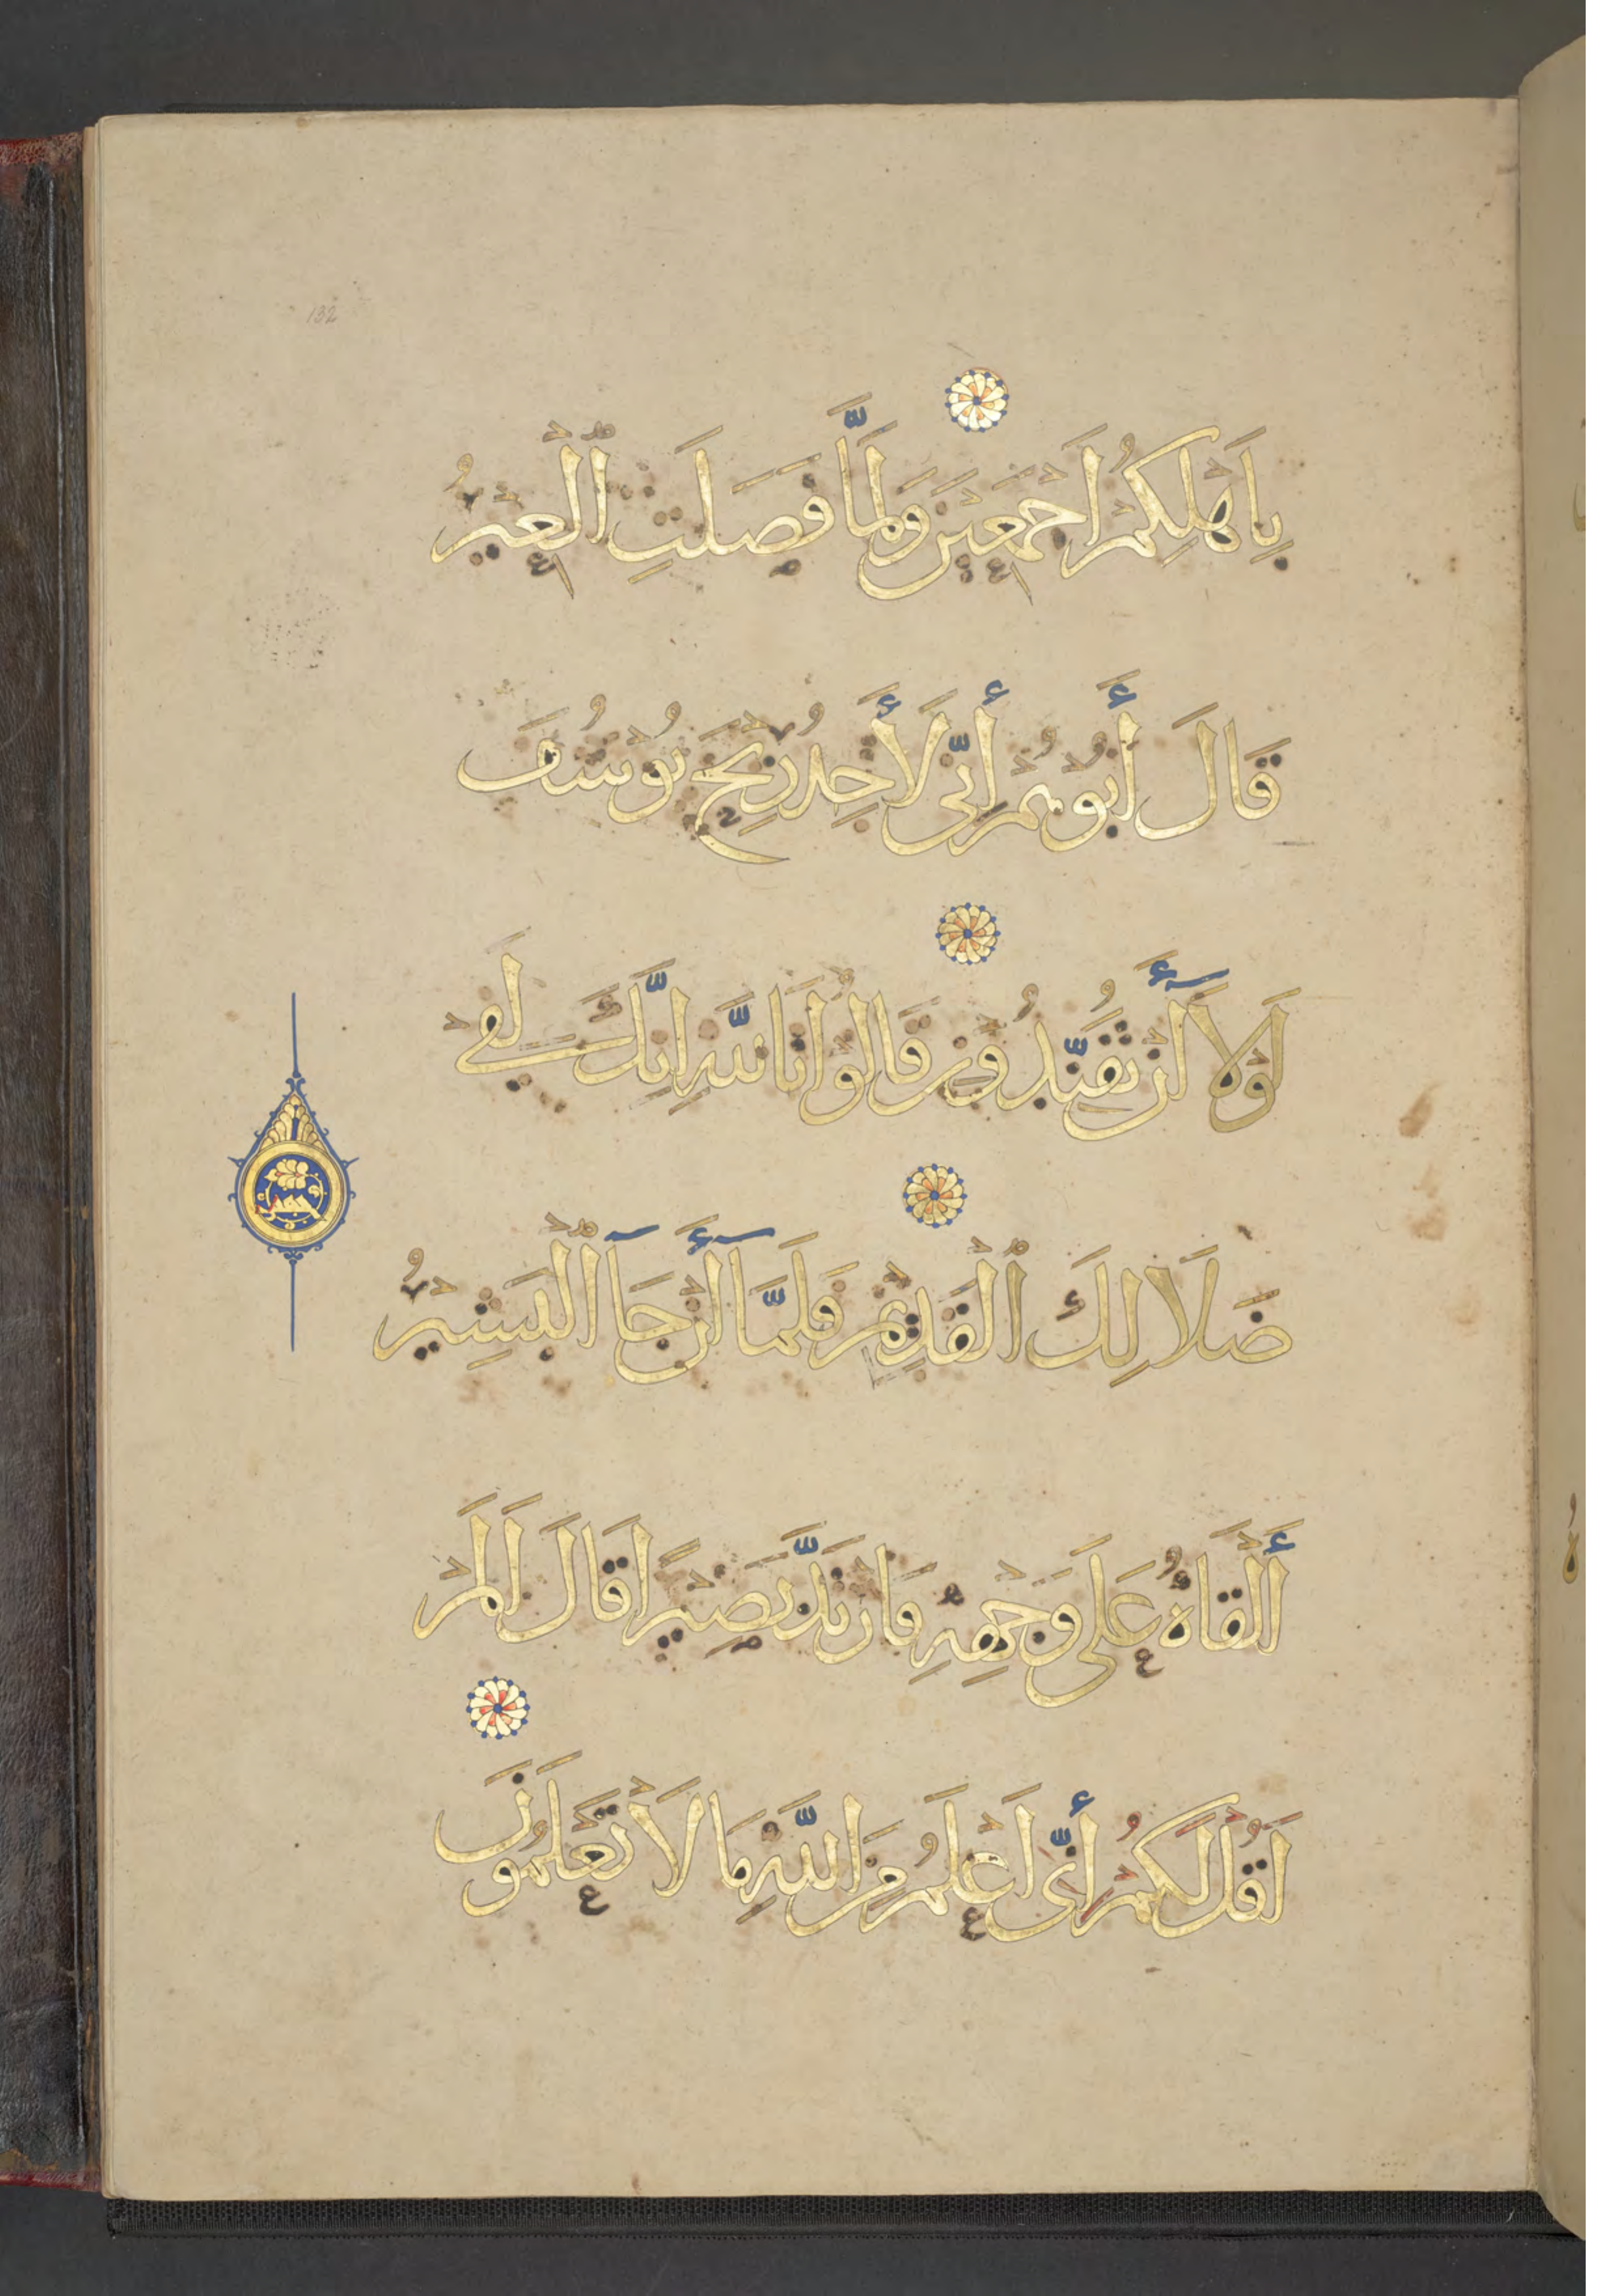 132
بِاَهْلِكُمْ اَجْمَعِيْنَ وَلَمَّا فَصَلَتِ ٱلْعِيْرُ
قَالَ أَبُوْهُمْ أِنِّى لَأَجِدُ رِيْحَ يُوْسُفَ
لَوْلَآ أَنْ تُفَنِّدُوْنِ قَالُوْا تَاللّٰهِ اِنَّكَ لَفِىْ
ضَلَالِكَ ٱلْقَدِيْمِ فَلَمَّآ أَنْ جَآ ٱلْبَشِيْرُ
أَلْقَاهُ عَلَى وَجْهِهِ فَارْتَدَّ بَصِيْرًا قَالَ اَلَمْ
اَقُلْ لَكُمْ أِنِّى اَعْلَمُ مِنَ اللّٰهِ مَا لَا تَعْلَمُوْنَ